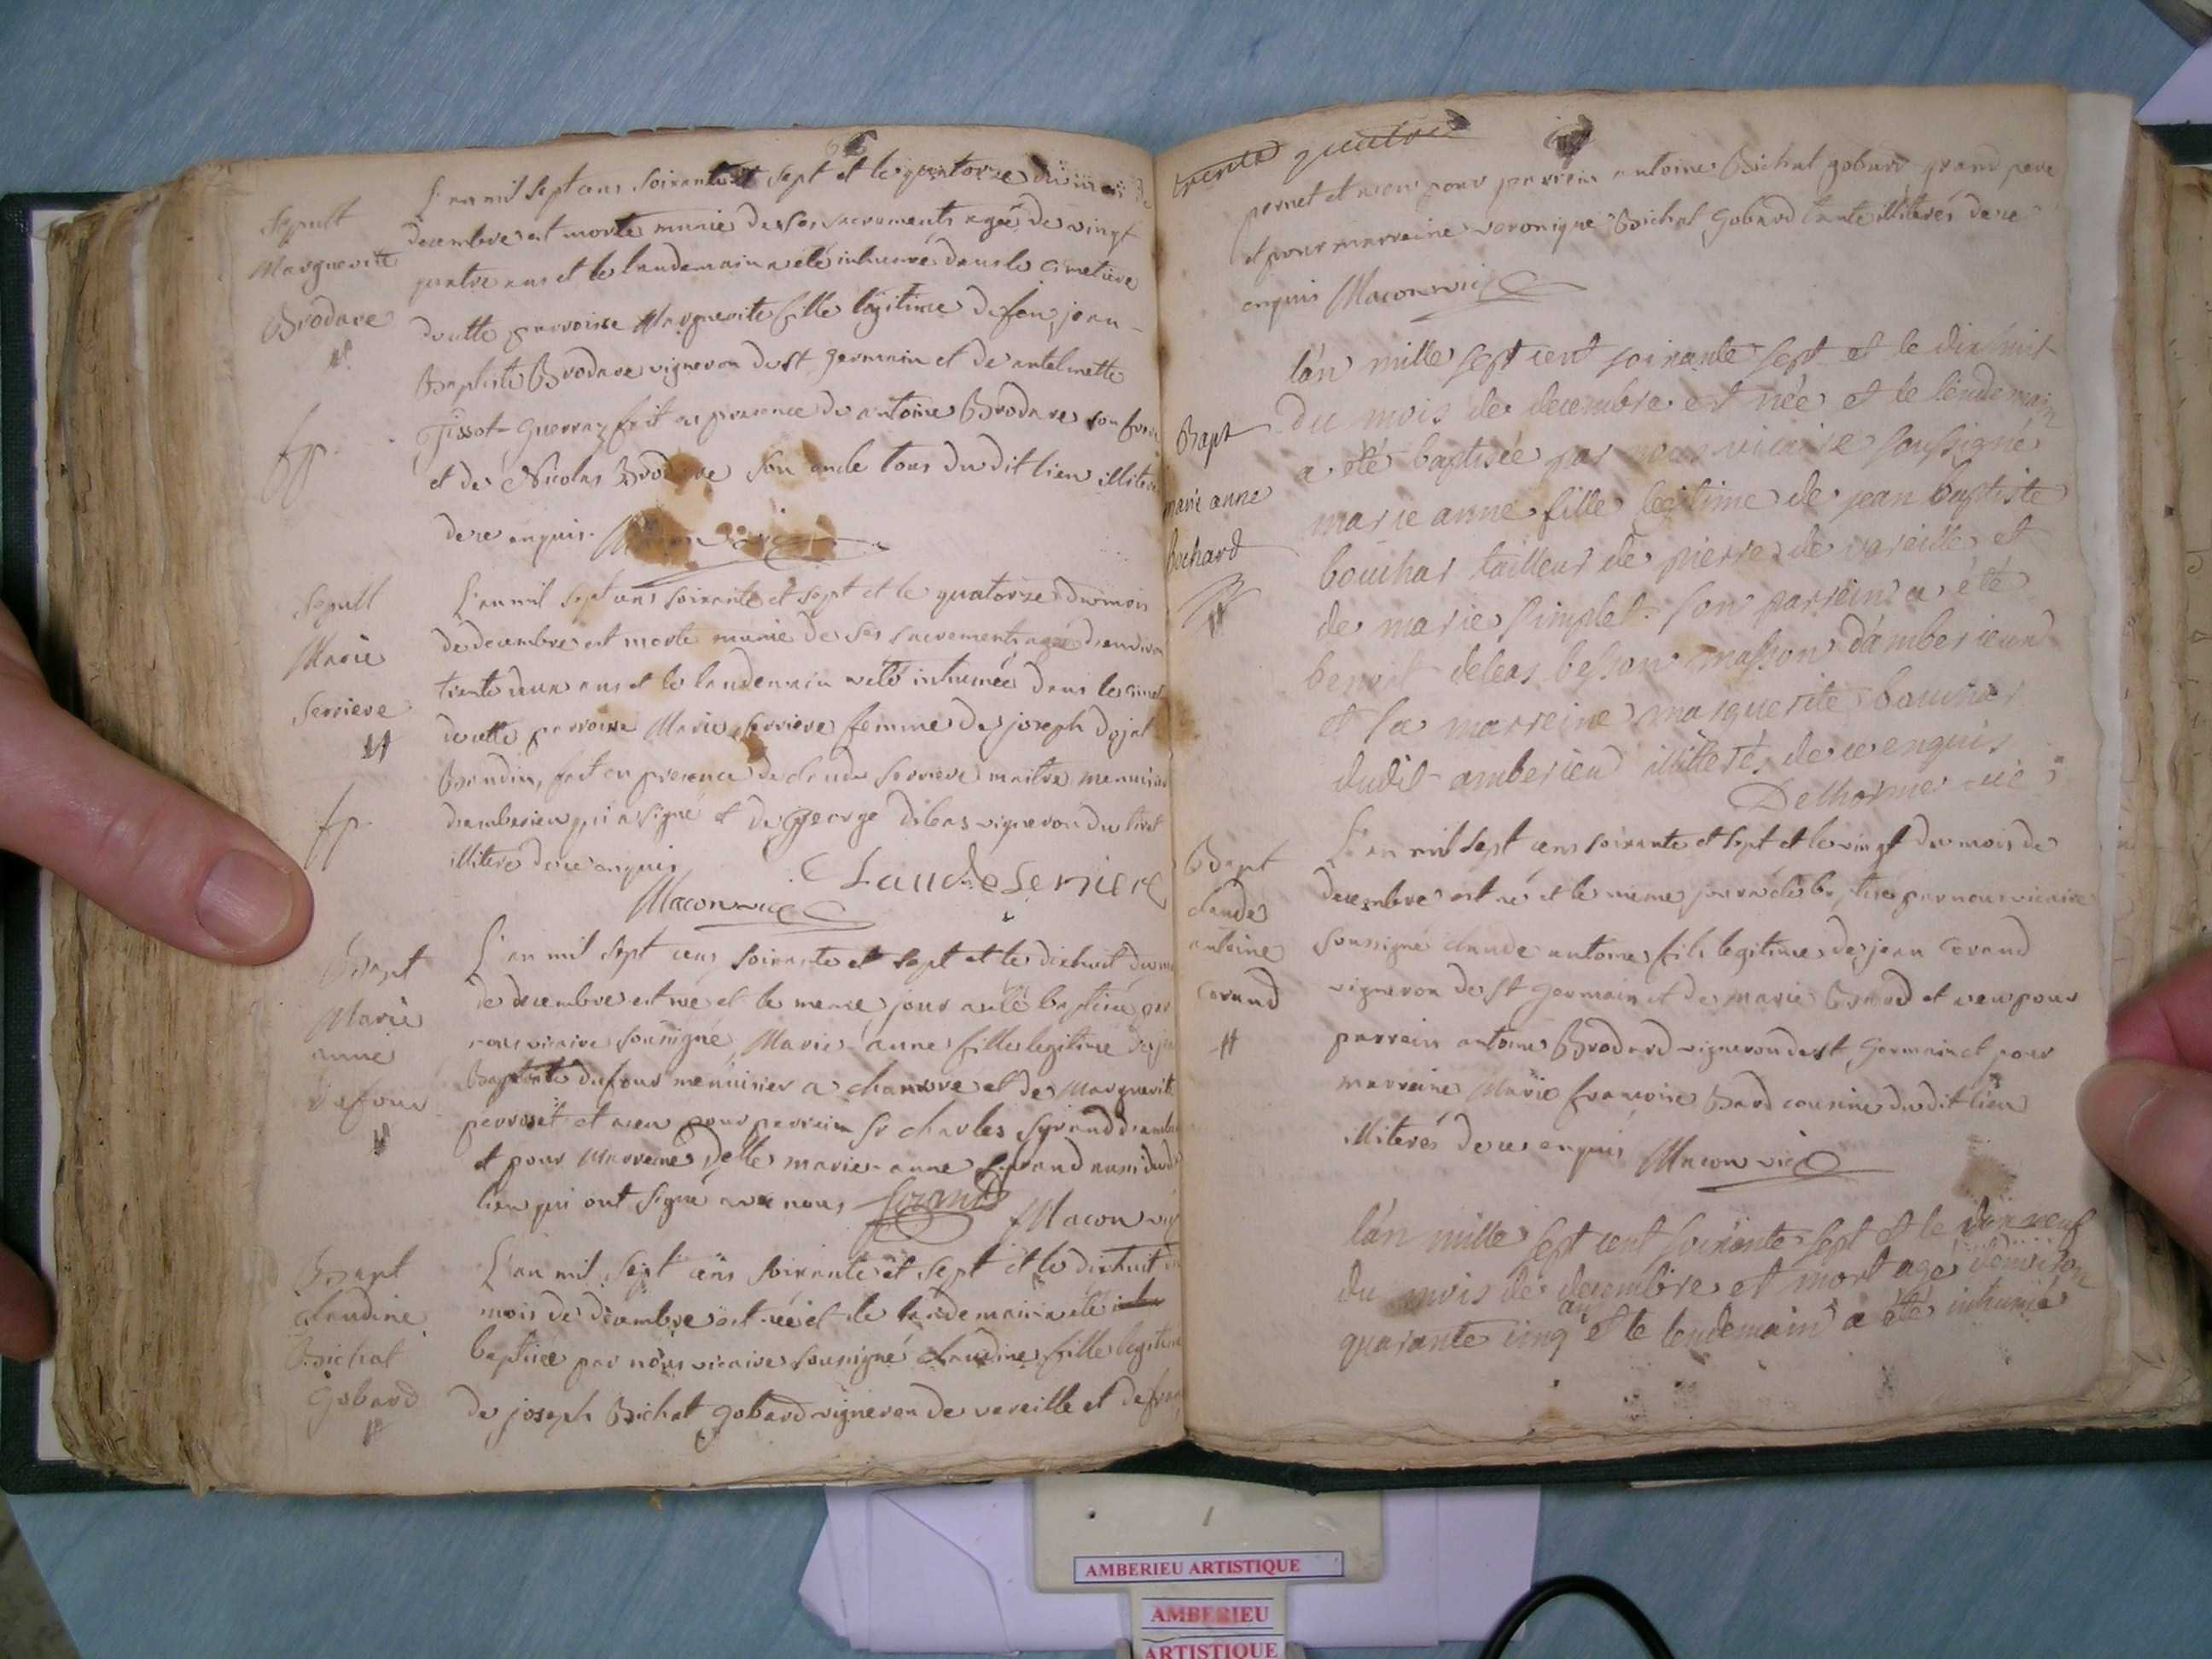 L'an mil sept cens soixante et sept et le quatorze du mois de
decembre est morte munie de ses sacrements agée de vingt
quatre ans et le landemain a eté inhumée dans le cimetiere
de cette parroisse Marguerite fille legitime de feu jean
Baptiste Brodare vigneron de st germain et de antelmette
Tissot-Guerraz fait en presence de antoine Brodare son frere
et de Nicolas Brodare son oncle tous du dit lieu illiteré
de ce enquis.
Sepult
Marguerite
Brodare
L'an mil sept cens soixante et sept et le quatorze du mois
de decembre est morte munie de ses sacrements agée d'environ
trente deux ans et le landemain a eté inhumée dans le cimet
de cette parroisse Marie serriere femme de joseph dejat
Bondin, fait en presence de claude serriere maitre menuisier
d'amberieu qui a signé et de George deleas vigneron du tiret
illiteré de ce enquis
Claude Serriere
Macon vic
Sepult
Marie
Serriere
L'an mil sept cens soixante et sept et le dixhuit du mois
de decembre est née et le meme jour a eté baptisée par
nous vicaire sousigné Marie-anne fille legitime de jean
Baptiste dufour menuisier a chanvre et de Marguerite
perroset et a eu pour parrein sr charles syrand d'amberieu
et pour Marreine Delle marie-anne syrand aussi dudit
lieu qui ont signé avec nous Sirand Macon vic
Bapt
Marie
anne
Dufour
L'an mil sept cens soixante et sept et le dixhuit du
mois de decembre est née et le landemain a eté
baptisée par nous vicaire sousigné claudine fille legitime
de joseph Bichat gobard vigneron de vareille et de fran
Bapt
claudine
Bichat
Gobard
trente quatre
pernet et a eu pour parrein antoine Bichat gobard grand pere
et pour marreine veronique Bichat Gobard tante illiterés de ce
enquis Macon vic
l'an mille sept cent soixante sept et le dix huit
du mois de decembre est née et le lendemain
a été baptisée par nous vicaire soussigné
marie anne fille legitime de jean baptiste
bouchar tailleur de pierre de vareille et
de marie simplet. son parrein a été
benoit deleas besson masson d'amberieux
et sa marreine marguerite
dudit amberieu illitteré de ce enquis
Delhorme vic
Bapt
marie anne
bochard
L'an mil sept cens soixante et sept et le vingt du mois de
decembre est né et le meme jour a eté baptisé par nous vicaire
sousigné claude antoine fils legitime de jean Corand
vigneron de st Germain et de marie Brard et a eu pour
parrein antoine Brodard vigneron de st Germain et pour
marreine Marie francoise Bard cousine du dit lieu
illiterés de ce enquis Macon vic
Bapt
claude
antoine
Corand
l'an mille sept cent soixante sept et le dix neuf
du mois de decembre est mort agé d'environ
quarante cinq ans et le lendemain a été inhumé
AMBERIEU ARTISTIQUE
AMBERIEU
ARTISTIQUE